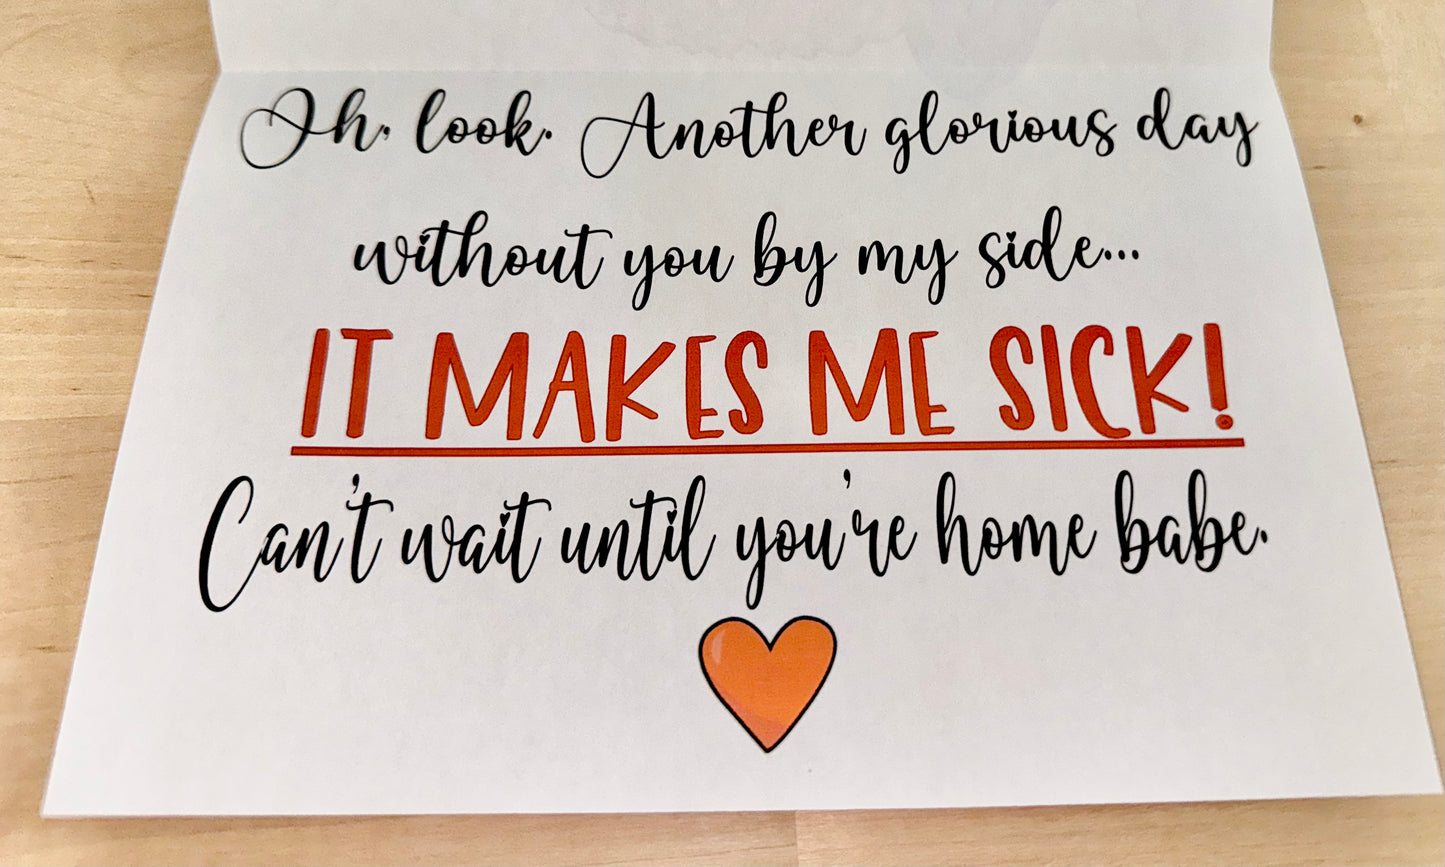 Oh, look. Another glorious day
without you by my side...
IT MAKES ME SICK!
Can't wait until you're home babe.